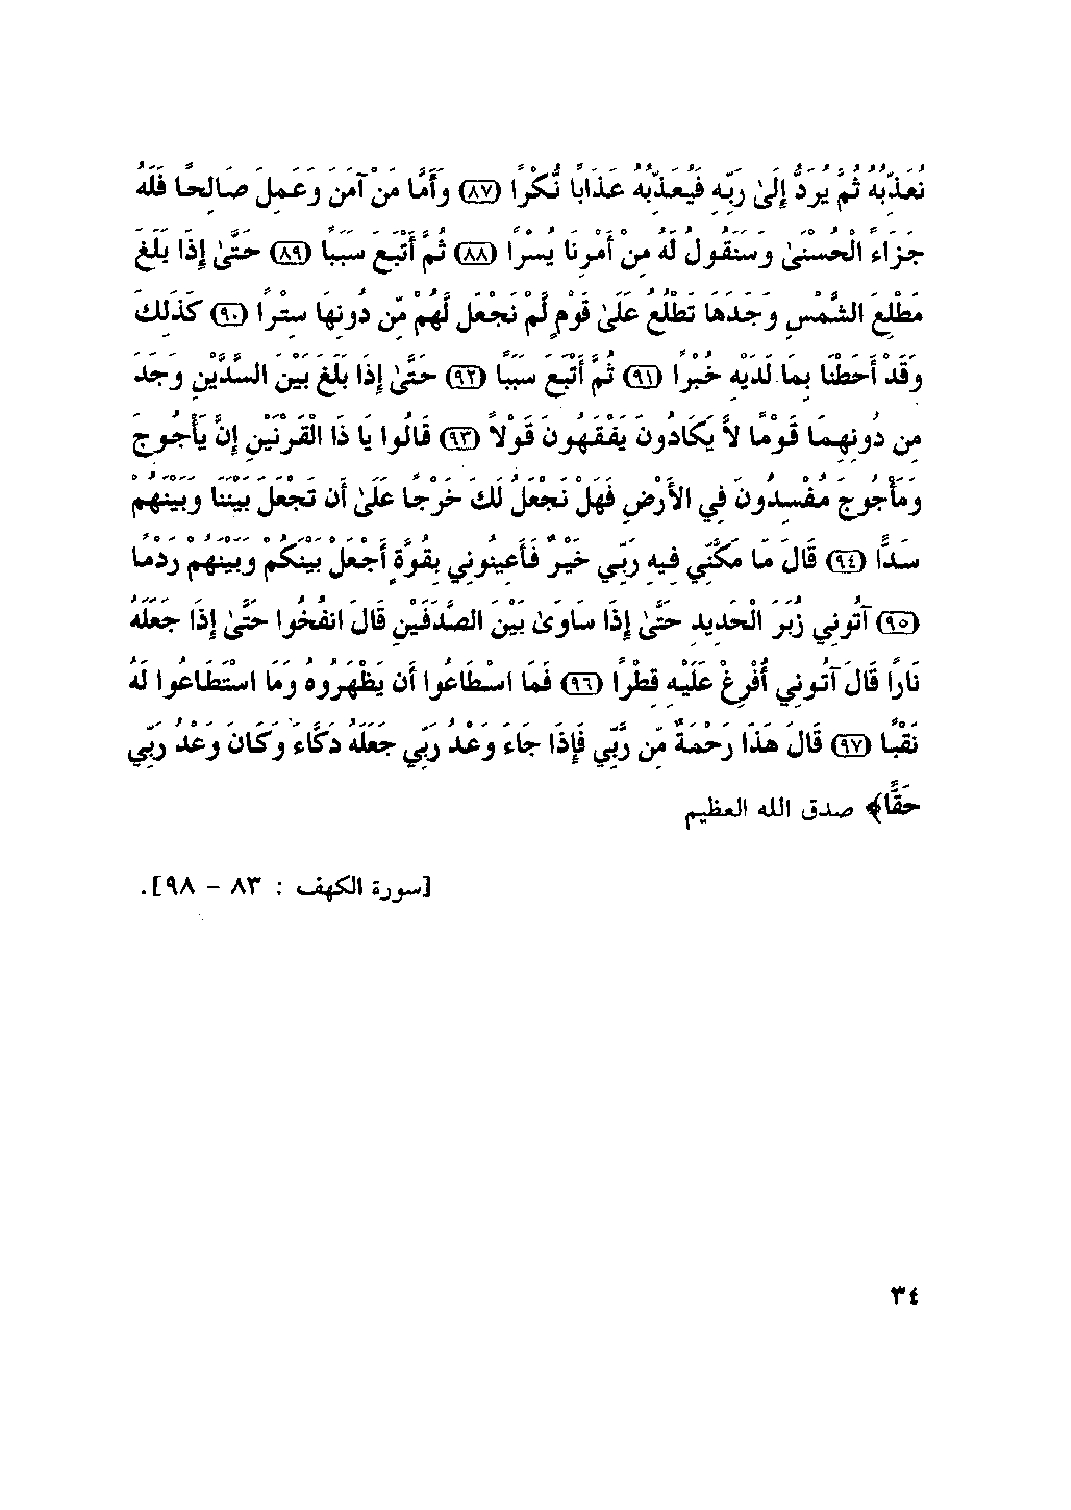 نُعَذِّبُهُ ثُمَّ يُرَدُّ إِلَىٰ رَبِّهِ فَيُعَذِّبُهُ عَذَابًا نُّكْرًا (٨٧) وَأَمَّا مَنْ آمَنَ وَعَمِلَ صَالِحًا فَلَهُ
جَزَاءً الْحُسْنَىٰ وَسَنَقُولُ لَهُ مِنْ أَمْرِنَا يُسْرًا (٨٨) ثُمَّ أَتْبَعَ سَبَبًا (٨٩) حَتَّىٰ إِذَا بَلَغَ
مَطْلِعَ الشَّمْسِ وَجَدَهَا تَطْلُعُ عَلَىٰ قَوْمٍ لَّمْ نَجْعَل لَّهُمْ مِّن دُونِهَا سِتْرًا (٩٠) كَذَلِكَ
وَقَدْ أَحَطْنَا بِمَا لَدَيْهِ خُبْرًا (٩١) ثُمَّ أَتْبَعَ سَبَبًا (٩٢) حَتَّىٰ إِذَا بَلَغَ بَيْنَ السَّدَّيْنِ وَجَدَ
مِن دُونِهِمَا قَوْمًا لاَّ يَكَادُونَ يَفْقَهُونَ قَوْلاً (٩٣) قَالُوا يَا ذَا الْقَرْنَيْنِ إِنَّ يَأْجُوجَ
وَمَأْجُوجَ مُفْسِدُونَ فِي الأَرْضِ فَهَلْ نَجْعَلُ لَكَ خَرْجًا عَلَىٰ أَن تَجْعَلَ بَيْنَنَا وَبَيْنَهُمْ
سَدًّا (٩٤) قَالَ مَا مَكَّنِّي فِيهِ رَبِّي خَيْرٌ فَأَعِينُونِي بِقُوَّةٍ أَجْعَلْ بَيْنَكُمْ وَبَيْنَهُمْ رَدْمًا
(٩٥) آتُونِي زُبَرَ الْحَدِيدِ حَتَّىٰ إِذَا سَاوَىٰ بَيْنَ الصَّدَفَيْنِ قَالَ انفُخُوا حَتَّىٰ إِذَا جَعَلَهُ
نَارًا قَالَ آتُونِي أُفْرِغْ عَلَيْهِ قِطْرًا (٩٦) فَمَا اسْطَاعُوا أَن يَظْهَرُوهُ وَمَا اسْتَطَاعُوا لَهُ
نَقْبًا (٩٧) قَالَ هَذَا رَحْمَةٌ مِّن رَّبِّي فَإِذَا جَاءَ وَعْدُ رَبِّي جَعَلَهُ دَكَّاءَ وَكَانَ وَعْدُ رَبِّي
حَقًّا﴾ صدق الله العظيم
[سورة الكهف : ٨٣ - ٩٨].
٣٤